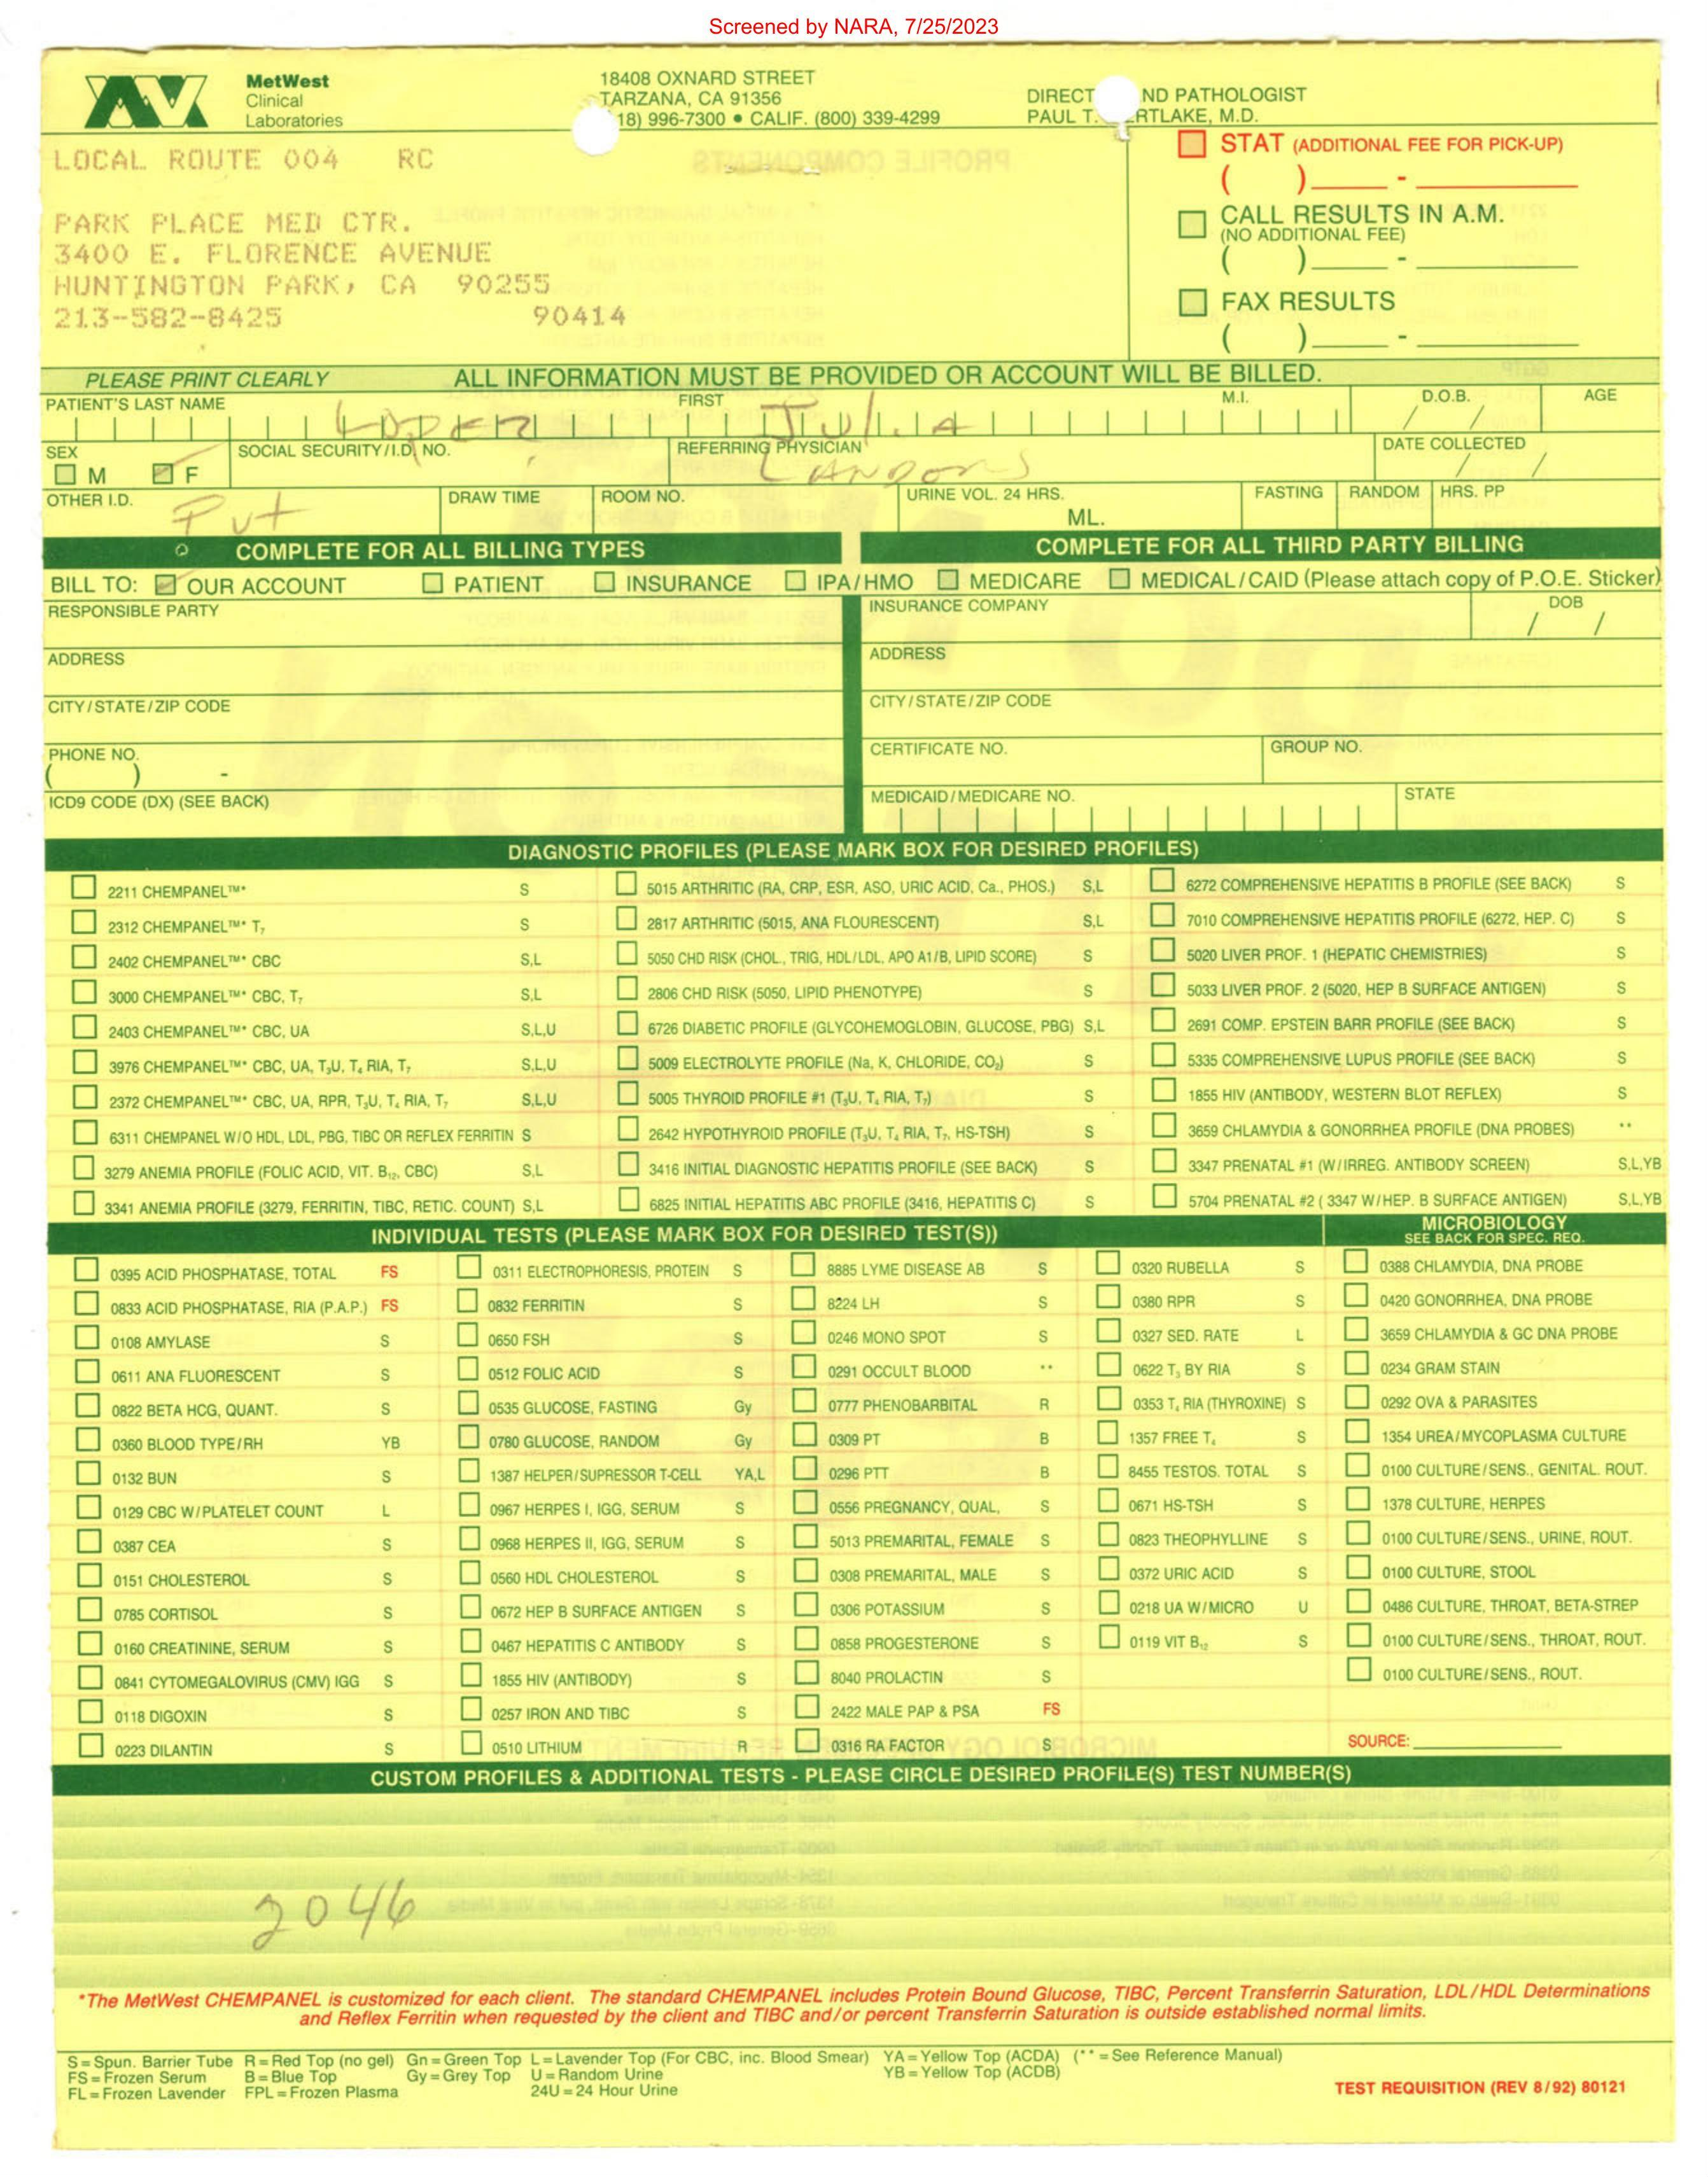 Screened by NARA, 7/25/2023
MetWest
Clinical
Laboratories
18408 OXNARD STREET
TARZANA, CA 91356
18) 996-7300 • CALIF. (800) 339-4299
DIRECT ND PATHOLOGIST
PAUL T. RTLAKE, M.D.
LOCAL ROUTE 004 RC
PARK PLACE MED CTR.
3400 E. FLORENCE AVENUE
HUNTINGTON PARK, CA 90255
213-582-8425 90414
STAT (ADDITIONAL FEE FOR PICK-UP)
( ) -
CALL RESULTS IN A.M.
(NO ADDITIONAL FEE)
( ) -
FAX RESULTS
( ) -
PLEASE PRINT CLEARLY ALL INFORMATION MUST BE PROVIDED OR ACCOUNT WILL BE BILLED.
PATIENT'S LAST NAME FIRST M.I. D.O.B. AGE
Lopez Julia / /
SEX SOCIAL SECURITY/I.D. NO. REFERRING PHYSICIAN DATE COLLECTED
M F / /
OTHER I.D. DRAW TIME ROOM NO. URINE VOL. 24 HRS. FASTING RANDOM HRS. PP
Pvt ML.
COMPLETE FOR ALL BILLING TYPES COMPLETE FOR ALL THIRD PARTY BILLING
BILL TO: OUR ACCOUNT PATIENT INSURANCE IPA/HMO MEDICARE MEDICAL/CAID (Please attach copy of P.O.E. Sticker)
RESPONSIBLE PARTY INSURANCE COMPANY DOB
/ /
ADDRESS ADDRESS
CITY/STATE/ZIP CODE CITY/STATE/ZIP CODE
PHONE NO. CERTIFICATE NO. GROUP NO.
( ) -
ICD9 CODE (DX) (SEE BACK) MEDICAID/MEDICARE NO. STATE
DIAGNOSTIC PROFILES (PLEASE MARK BOX FOR DESIRED PROFILES)
2211 CHEMPANEL™* S
2312 CHEMPANEL™* T7 S
2402 CHEMPANEL™* CBC S,L
3000 CHEMPANEL™* CBC, T7 S,L
2403 CHEMPANEL™* CBC, UA S,L,U
3976 CHEMPANEL™* CBC, UA, T3U, T4 RIA, T7 S,L,U
2372 CHEMPANEL™* CBC, UA, RPR, T3U, T4 RIA, T7 S,L,U
6311 CHEMPANEL W/O HDL, LDL, PBG, TIBC OR REFLEX FERRITIN S
3279 ANEMIA PROFILE (FOLIC ACID, VIT. B12, CBC) S,L
3341 ANEMIA PROFILE (3279, FERRITIN, TIBC, RETIC. COUNT) S,L
5015 ARTHRITIC (RA, CRP, ESR, ASO, URIC ACID, Ca., PHOS.) S,L
2817 ARTHRITIC (5015, ANA FLOURESCENT) S,L
5050 CHD RISK (CHOL., TRIG, HDL/LDL, APO A1/B, LIPID SCORE) S
2806 CHD RISK (5050, LIPID PHENOTYPE) S
6726 DIABETIC PROFILE (GLYCOHEMOGLOBIN, GLUCOSE, PBG) S,L
5009 ELECTROLYTE PROFILE (Na, K, CHLORIDE, CO2) S
5005 THYROID PROFILE #1 (T3U, T4 RIA, T7) S
2642 HYPOTHYROID PROFILE (T3U, T4 RIA, T7, HS-TSH) S
3416 INITIAL DIAGNOSTIC HEPATITIS PROFILE (SEE BACK) S
6825 INITIAL HEPATITIS ABC PROFILE (3416, HEPATITIS C) S
6272 COMPREHENSIVE HEPATITIS B PROFILE (SEE BACK) S
7010 COMPREHENSIVE HEPATITIS PROFILE (6272, HEP. C) S
5020 LIVER PROF. 1 (HEPATIC CHEMISTRIES) S
5033 LIVER PROF. 2 (5020, HEP B SURFACE ANTIGEN) S
2691 COMP. EPSTEIN BARR PROFILE (SEE BACK) S
5335 COMPREHENSIVE LUPUS PROFILE (SEE BACK) S
1855 HIV (ANTIBODY, WESTERN BLOT REFLEX) S
3659 CHLAMYDIA & GONORRHEA PROFILE (DNA PROBES) **
3347 PRENATAL #1 (W/IRREG. ANTIBODY SCREEN) S,L,YB
5704 PRENATAL #2 ( 3347 W/HEP. B SURFACE ANTIGEN) S,L,YB
INDIVIDUAL TESTS (PLEASE MARK BOX FOR DESIRED TEST(S))
MICROBIOLOGY
SEE BACK FOR SPEC. REQ.
0395 ACID PHOSPHATASE, TOTAL FS
0833 ACID PHOSPHATASE, RIA (P.A.P.) FS
0108 AMYLASE S
0611 ANA FLUORESCENT S
0822 BETA HCG, QUANT. S
0360 BLOOD TYPE/RH YB
0132 BUN S
0129 CBC W/PLATELET COUNT L
0387 CEA S
0151 CHOLESTEROL S
0785 CORTISOL S
0160 CREATININE, SERUM S
0841 CYTOMEGALOVIRUS (CMV) IGG S
0118 DIGOXIN S
0223 DILANTIN S
0311 ELECTROPHORESIS, PROTEIN S
0832 FERRITIN S
0650 FSH S
0512 FOLIC ACID S
0535 GLUCOSE, FASTING Gy
0780 GLUCOSE, RANDOM Gy
1387 HELPER/SUPRESSOR T-CELL YA,L
0967 HERPES I, IGG, SERUM S
0968 HERPES II, IGG, SERUM S
0560 HDL CHOLESTEROL S
0672 HEP B SURFACE ANTIGEN S
0467 HEPATITIS C ANTIBODY S
1855 HIV (ANTIBODY) S
0257 IRON AND TIBC S
0510 LITHIUM R
8885 LYME DISEASE AB S
8224 LH S
0246 MONO SPOT S
0291 OCCULT BLOOD **
0777 PHENOBARBITAL R
0309 PT B
0296 PTT B
0556 PREGNANCY, QUAL, S
5013 PREMARITAL, FEMALE S
0308 PREMARITAL, MALE S
0306 POTASSIUM S
0858 PROGESTERONE S
8040 PROLACTIN S
2422 MALE PAP & PSA FS
0316 RA FACTOR S
0320 RUBELLA S
0380 RPR S
0327 SED. RATE L
0622 T3 BY RIA S
0353 T4 RIA (THYROXINE) S
1357 FREE T4 S
8455 TESTOS. TOTAL S
0671 HS-TSH S
0823 THEOPHYLLINE S
0372 URIC ACID S
0218 UA W/MICRO U
0119 VIT B12 S
0388 CHLAMYDIA, DNA PROBE
0420 GONORRHEA, DNA PROBE
3659 CHLAMYDIA & GC DNA PROBE
0234 GRAM STAIN
0292 OVA & PARASITES
1354 UREA/MYCOPLASMA CULTURE
0100 CULTURE/SENS., GENITAL. ROUT.
1378 CULTURE, HERPES
0100 CULTURE/SENS., URINE, ROUT.
0100 CULTURE, STOOL
0486 CULTURE, THROAT, BETA-STREP
0100 CULTURE/SENS., THROAT, ROUT.
0100 CULTURE/SENS., ROUT.
SOURCE:
CUSTOM PROFILES & ADDITIONAL TESTS - PLEASE CIRCLE DESIRED PROFILE(S) TEST NUMBER(S)
2046
*The MetWest CHEMPANEL is customized for each client. The standard CHEMPANEL includes Protein Bound Glucose, TIBC, Percent Transferrin Saturation, LDL/HDL Determinations
and Reflex Ferritin when requested by the client and TIBC and/or percent Transferrin Saturation is outside established normal limits.
S=Spun. Barrier Tube R=Red Top (no gel) Gn=Green Top L=Lavender Top (For CBC, inc. Blood Smear) YA=Yellow Top (ACDA) (**=See Reference Manual)
FS=Frozen Serum B=Blue Top Gy=Grey Top U=Random Urine YB=Yellow Top (ACDB)
FL=Frozen Lavender FPL=Frozen Plasma 24U=24 Hour Urine
TEST REQUISITION (REV 8/92) 80121